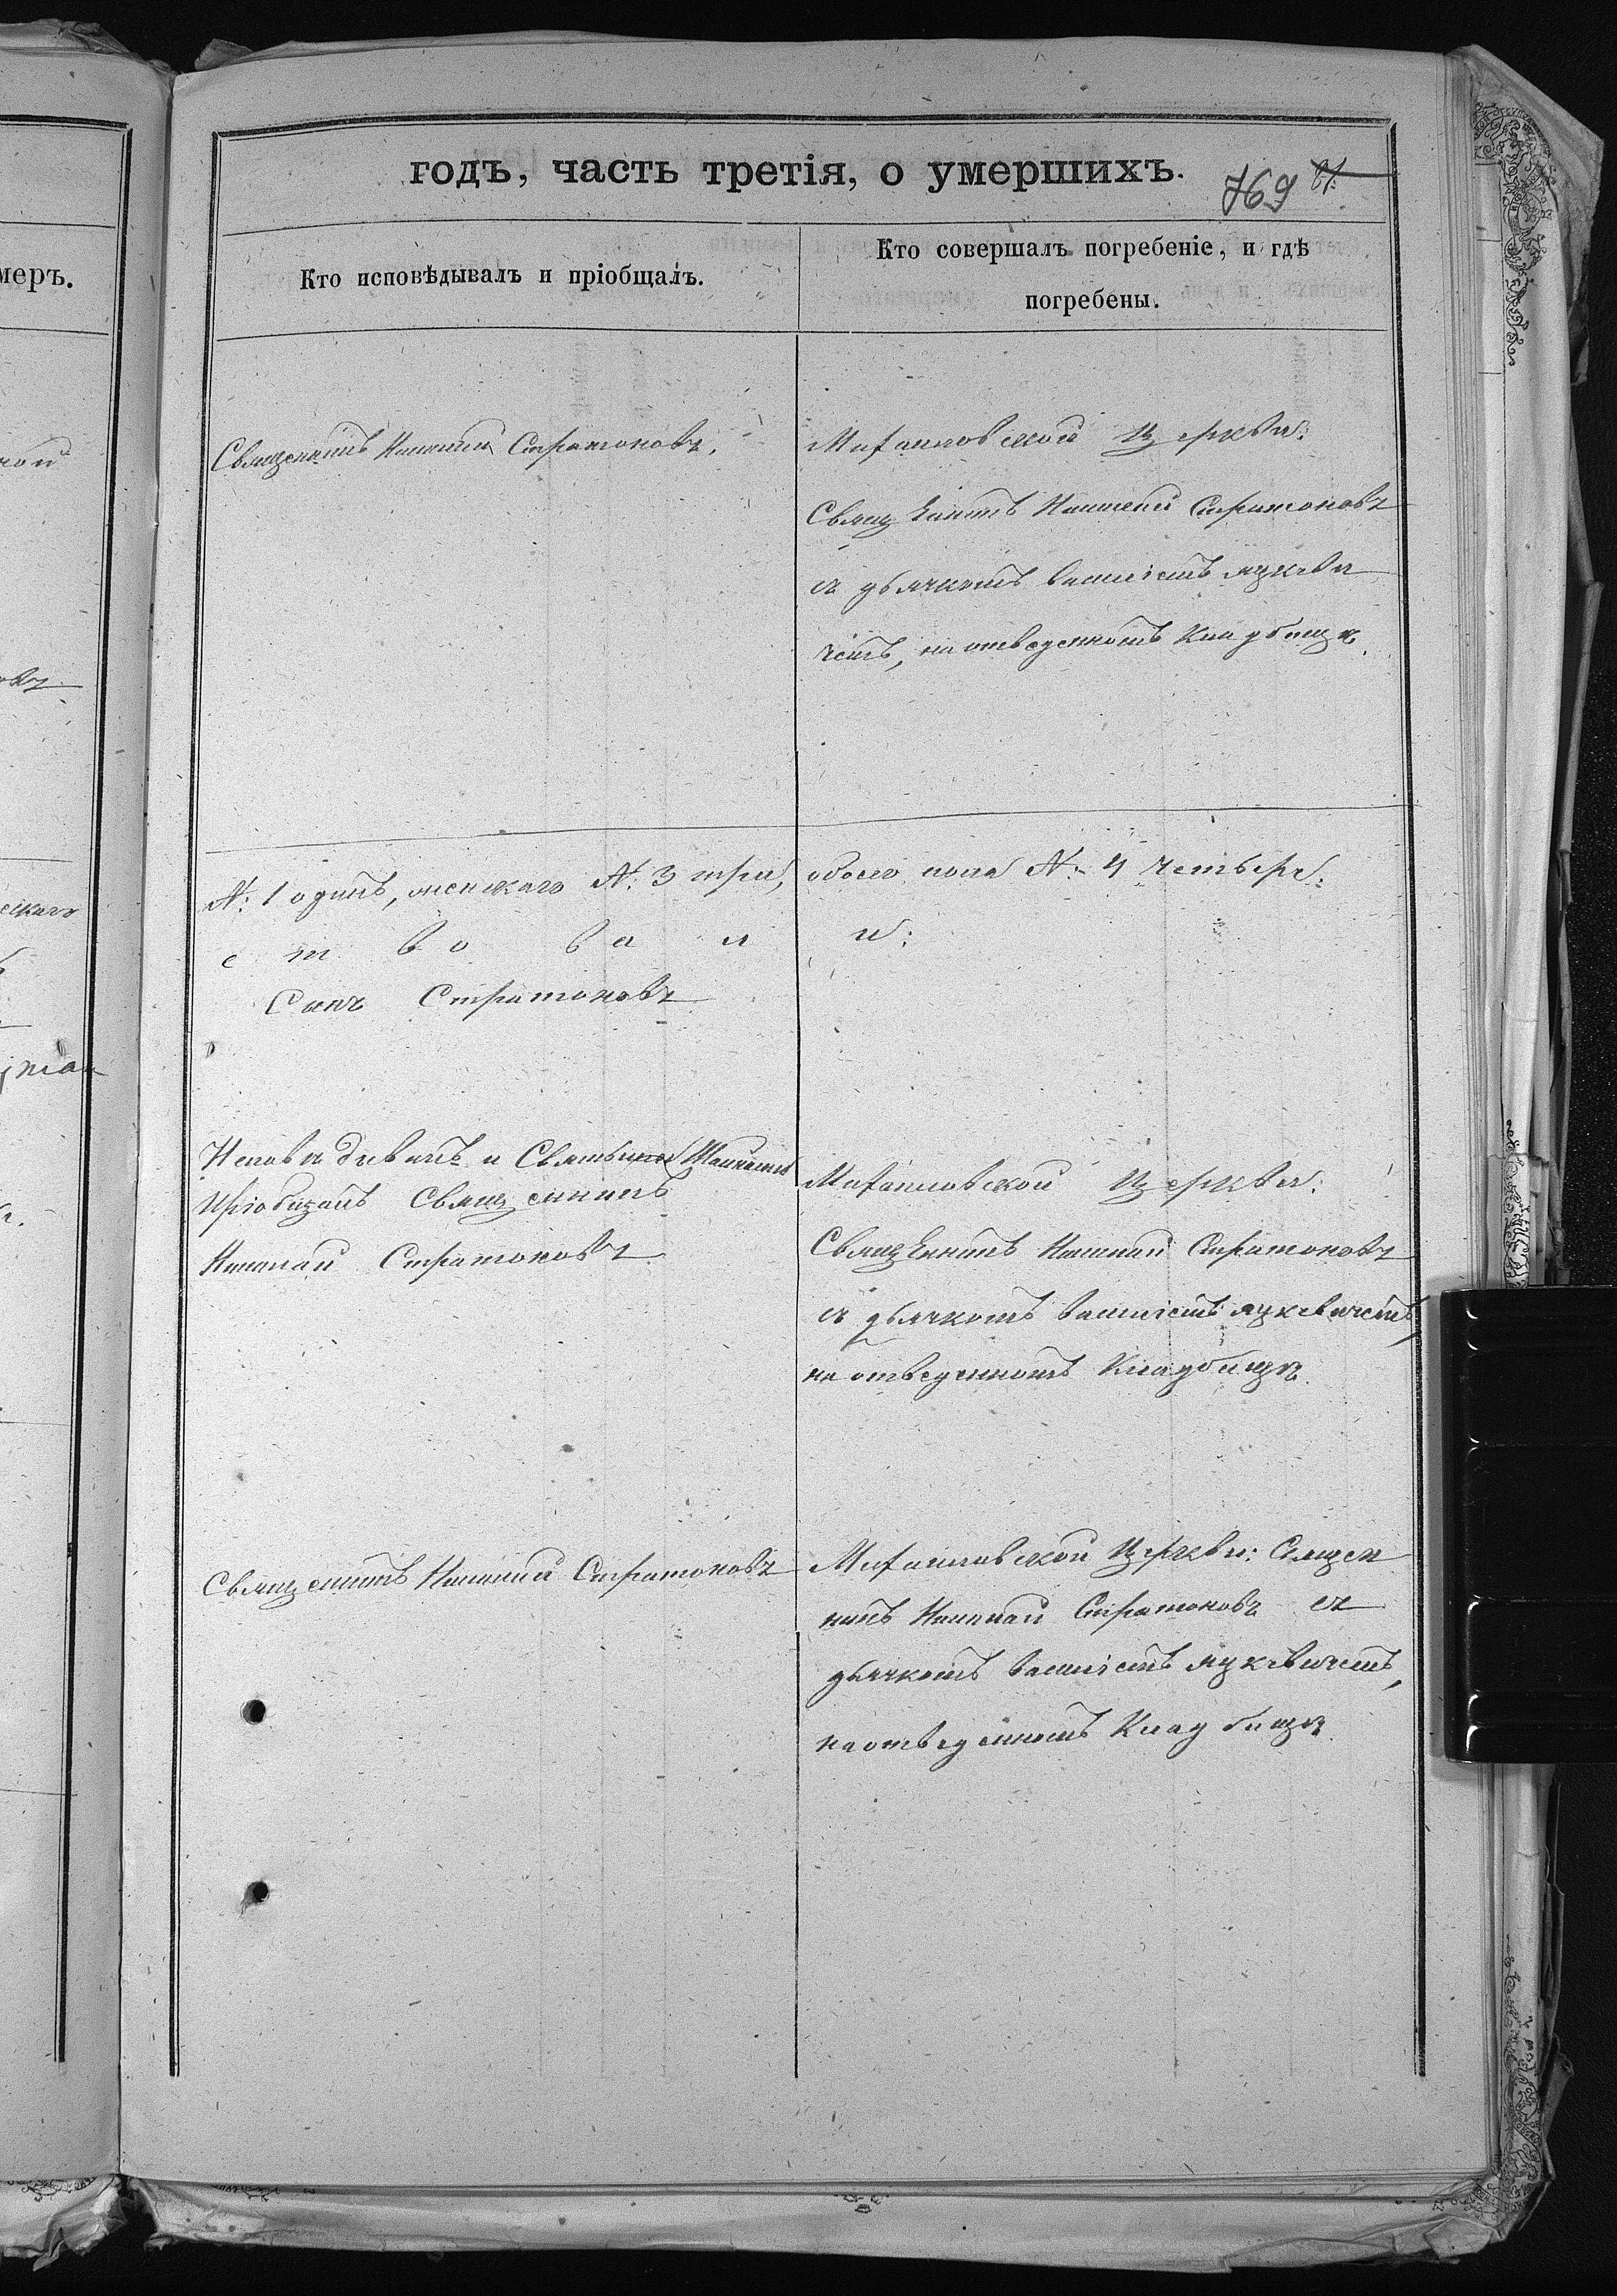 годъ, часть третія, о умершихъ.
769 81.
меръ.
Кто исповѣдывалъ и пріобщалъ.
Кто совершалъ погребеніе, и гдѣ
погребены.
Священникъ Николай Стратоновъ.
Михаиловской Церкви:
Священникъ Николай Стратоновъ
съ дьячкомъ Василіемъ
чемъ, на отведенномъ Кладбищѣ.
№: 1 одинъ, женскаго №: 3 три, обоего пола №: 4 четыре:
с т в о в а л и:
Стратоновъ
Исповѣдывалъ и Святыхъ Таинъ
Пріобщалъ Священникъ
Николай Стратоновъ
Михаиловской Церкви:
Священникъ Николай Стратоновъ
съ дьячкомъ Василіемъ
на отведенномъ Кладбищѣ.
Священникъ Николай Стратоновъ
Михаиловской Церкви: Священ
никъ Николай Стратоновъ съ
дьячкомъ Василіемъ
на отведенномъ Кладбищѣ.